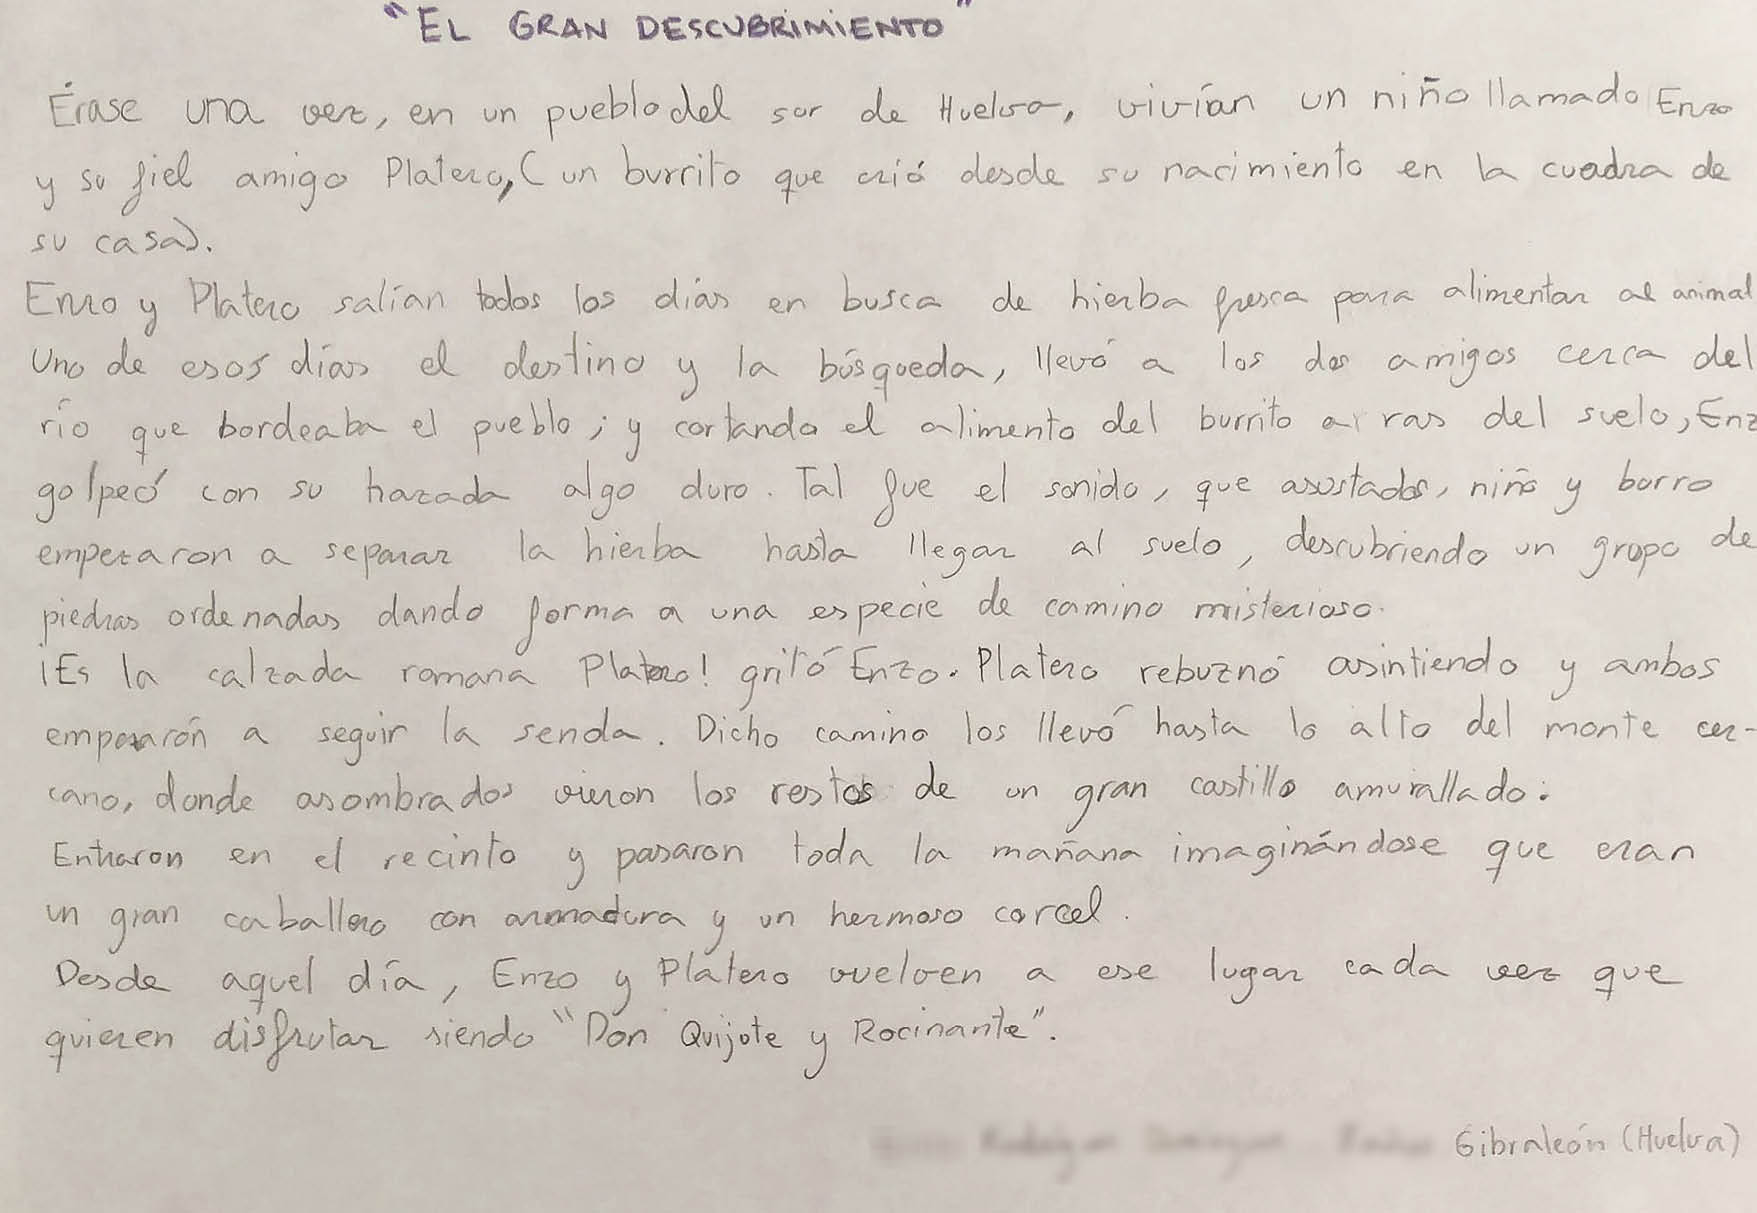 "EL GRAN DESCUBRIMIENTO"
Érase una vez, en un pueblo del sur de Huelva, vivían un niño llamado Enzo
y su fiel amigo Platero, (un burrito que crió desde su nacimiento en la cuadra de
su casa).
Enzo y Platero salían todos los días en busca de hierba fresca para alimentar al animal
Uno de esos días el destino y la búsqueda, llevó a los dos amigos cerca del
río que bordeaba el pueblo; y cortando el alimento del burrito a ras del suelo, Enz
golpeó con su hazada algo duro. Tal fue el sonido, que asustados, niño y burro
empezaron a separar la hierba hasta llegar al suelo, descubriendo un grupo de
piedras ordenadas dando forma a una especie de camino misterioso.
¡Es la calzada romana Platero! gritó Enzo. Platero rebuznó asintiendo y ambos
empezarón a seguir la senda. Dicho camino los llevó hasta lo alto del monte cer-
cano, donde asombrados vieron los restos de un gran castillo amurallado.
Entraron en el recinto y pasaron toda la mañana imaginándose que eran
un gran caballero con armadura y un hermoso corcel.
Desde aquel día, Enzo y Platero vuelven a ese lugar cada vez que
quieren disfrutar siendo "Don Quijote y Rocinante".
Gibraleón (Huelva)